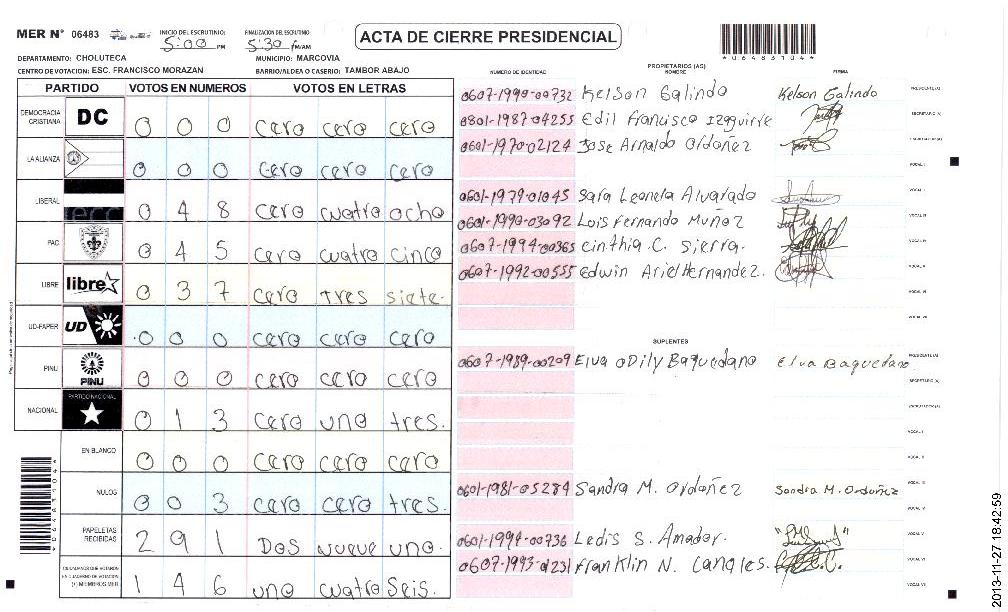 MER N° 06483
INICIO DEL ESCRUTINIO: 5:00 PM
FINALIZACION DEL ESCRUTINIO 5:30 PM/AM
ACTA DE CIERRE PRESIDENCIAL
*06483104*
DEPARTAMENTO: CHOLUTECA
MUNICIPIO: MARCOVIA
CENTRO DE VOTACION: ESC. FRANCISCO MORAZAN
BARRIO/ALDEA O CASERIO: TAMBOR ABAJO
PARTIDO VOTOS EN NUMEROS VOTOS EN LETRAS
DEMOCRACIA CRISTIANA DC 0 0 0 cero cero cero
LA ALIANZA 0 0 0 cero cero cero
LIBERAL 0 4 8 cero cuatro ocho
PAC 0 4 5 cero cuatro cinco
LIBRE libre 0 3 7 cero tres siete.
UD-FAPER UD 0 0 0 cero cero cero
PINU PINU 0 0 0 cero cero cero
NACIONAL PARTIDO NACIONAL 0 1 3 cero uno tres.
EN BLANCO 0 0 0 cero cero cero
NULOS 0 0 3 cero cero tres.
PAPELETAS RECIBIDAS 2 9 1 Dos nueve uno.
CIUDADANOS QUE VOTARON EN CUADERNO DE VOTACION (+) MIEMBROS MER 1 4 6 uno cuatro seis.
*06483104*
NUMERO DE IDENTIDAD
PROPIETARIOS (AS)
NOMBRE
FIRMA
0607-1990-00732 Kelson Galindo Kelson Galindo PRESIDENTE(A)
0801-1987-04255 Edil Francisco Izaguirre SECRETARIO (A)
0601-1970-02124 Jose Arnaldo Ordoñez ESCRUTADOR(A)
VOCAL I
0601-1979-01045 Sara Leonela Alvarado VOCAL II
0601-1990-03092 Luis Fernando Muñoz VOCAL III
0607-1994-00365 Cinthia C. Sierra. VOCAL IV
0607-1992-00555 Edwin Ariel Hernandez. VOCAL V
VOCAL VI
VOCAL VII
SUPLENTES
0607-1989-00209 Elva Odily Baquedano Elva Baquedano PRESIDENTE(A)
SECRETARIO (A)
ESCRUTADOR(A)
VOCAL I
VOCAL II
0601-1981-05284 Sandra M. Ordoñez Sandra M. Ordoñez VOCAL III
VOCAL IV
0601-1994-00736 Ledis S. Amador. VOCAL V
Franklin N. Canales. VOCAL VI
VOCAL VII
2013-11-27 18:42:59